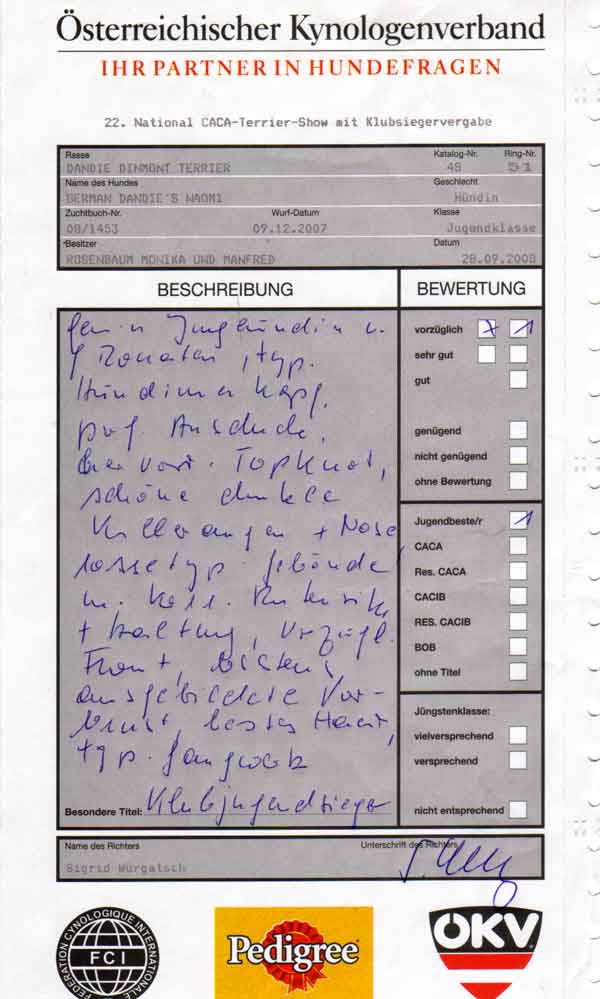 Österreichischer Kynologenverband
IHR PARTNER IN HUNDEFRAGEN
22. National CACA-Terrier-Show mit Klubsiegervergabe
Rasse Katalog-Nr. Ring-Nr.
DANDIE DINMONT TERRIER 48
Name des Hundes Geschlecht
GERMAN DANDIE'S NAOMI Hündin
Zuchtbuch-Nr. Wurf-Datum Klasse
08/1453 09.12.2007 Jugendklasse
Besitzer Datum
ROSENBAUM MONIKA UND MANFRED 28.09.2008
BESCHREIBUNG BEWERTUNG
Junghündin v.
9 Monaten, typ.
Hündinnen Kopf,
Ausdruck,
hervorr. TopKnot,
schöne dunkle
Kulleraugen + Nase
rassetyp. Gebäude
m. korr. Rutensitz
+ Haltung, Vorzügl.
Front, bestens
ausgebildete Vor-
brust, bestes Haar,
typ. Gangwerk
Besondere Titel: Klubjugendsieger
vorzüglich X 1
sehr gut
gut
genügend
nicht genügend
ohne Bewertung
Jugendbeste/r 1
CACA
Res. CACA
CACIB
RES. CACIB
BOB
ohne Titel
Jüngstenklasse:
vielversprechend
versprechend
nicht entsprechend
Name des Richters Unterschrift des Richters
Sigrid Wurgatsch
FEDERATION CYNOLOGIQUE INTERNATIONALE
FCI
Pedigree
ÖKV